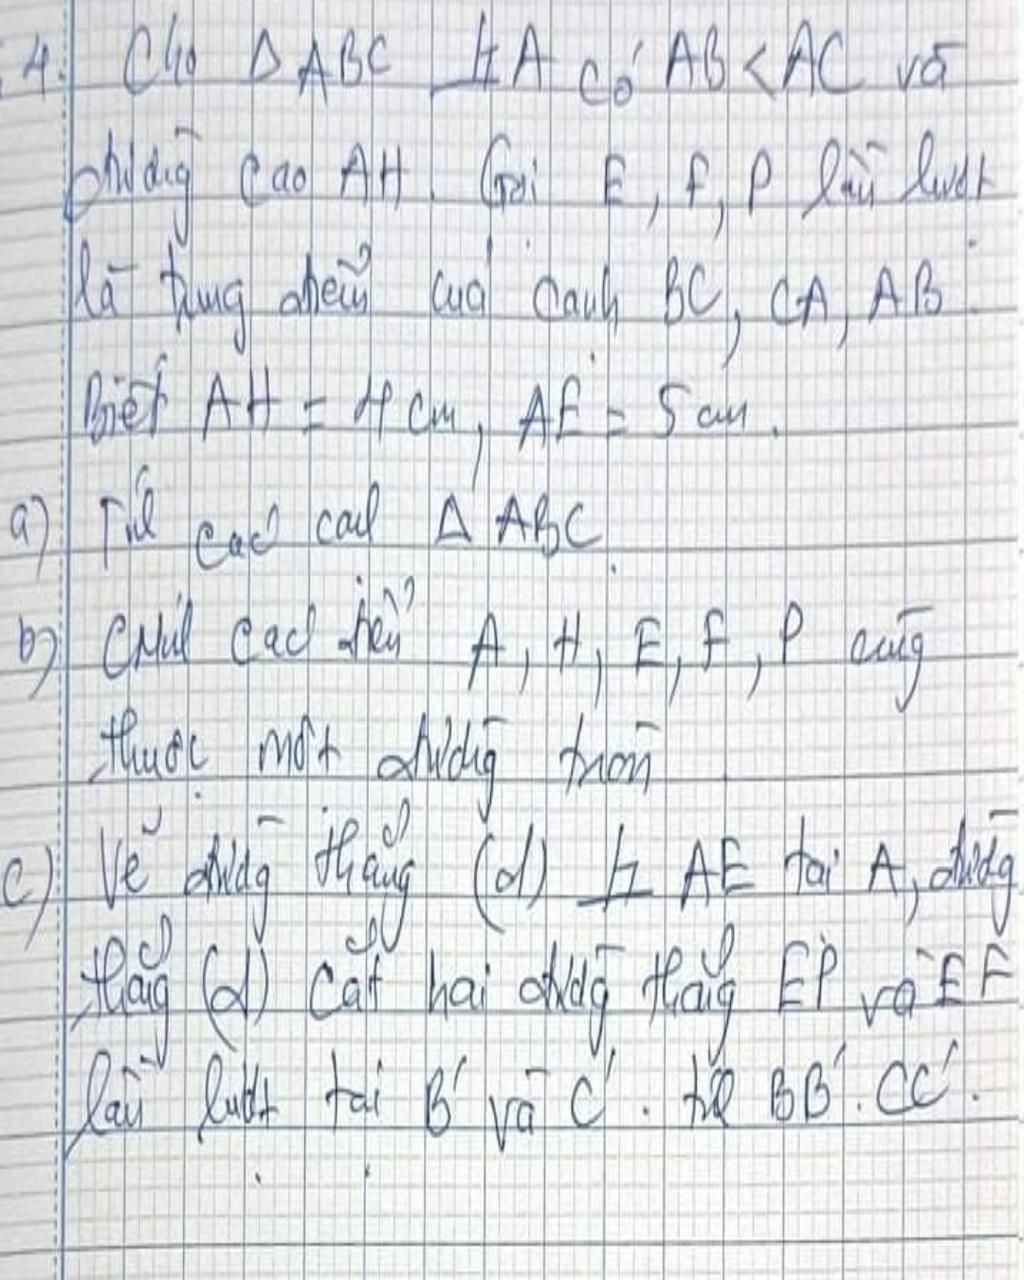 4. Cho Δ ABC ⊥ A có AB < AC và
đường cao AH. Gọi E, F, P lần lượt
là trung điểm của cạnh BC, CA, AB.
Biết AH = 4 cm, AE = 5 cm.
a) Tính các cạnh Δ ABC.
b) CMinh các điểm A, H, E, F, P cùng
thuộc một đường tròn
c) Vẽ đường thẳng (d) ⊥ AE tại A, đường
thẳng (d) cắt hai đường thẳng EP và EF
lần lượt tại B' và C'. tính BB'. CC'.